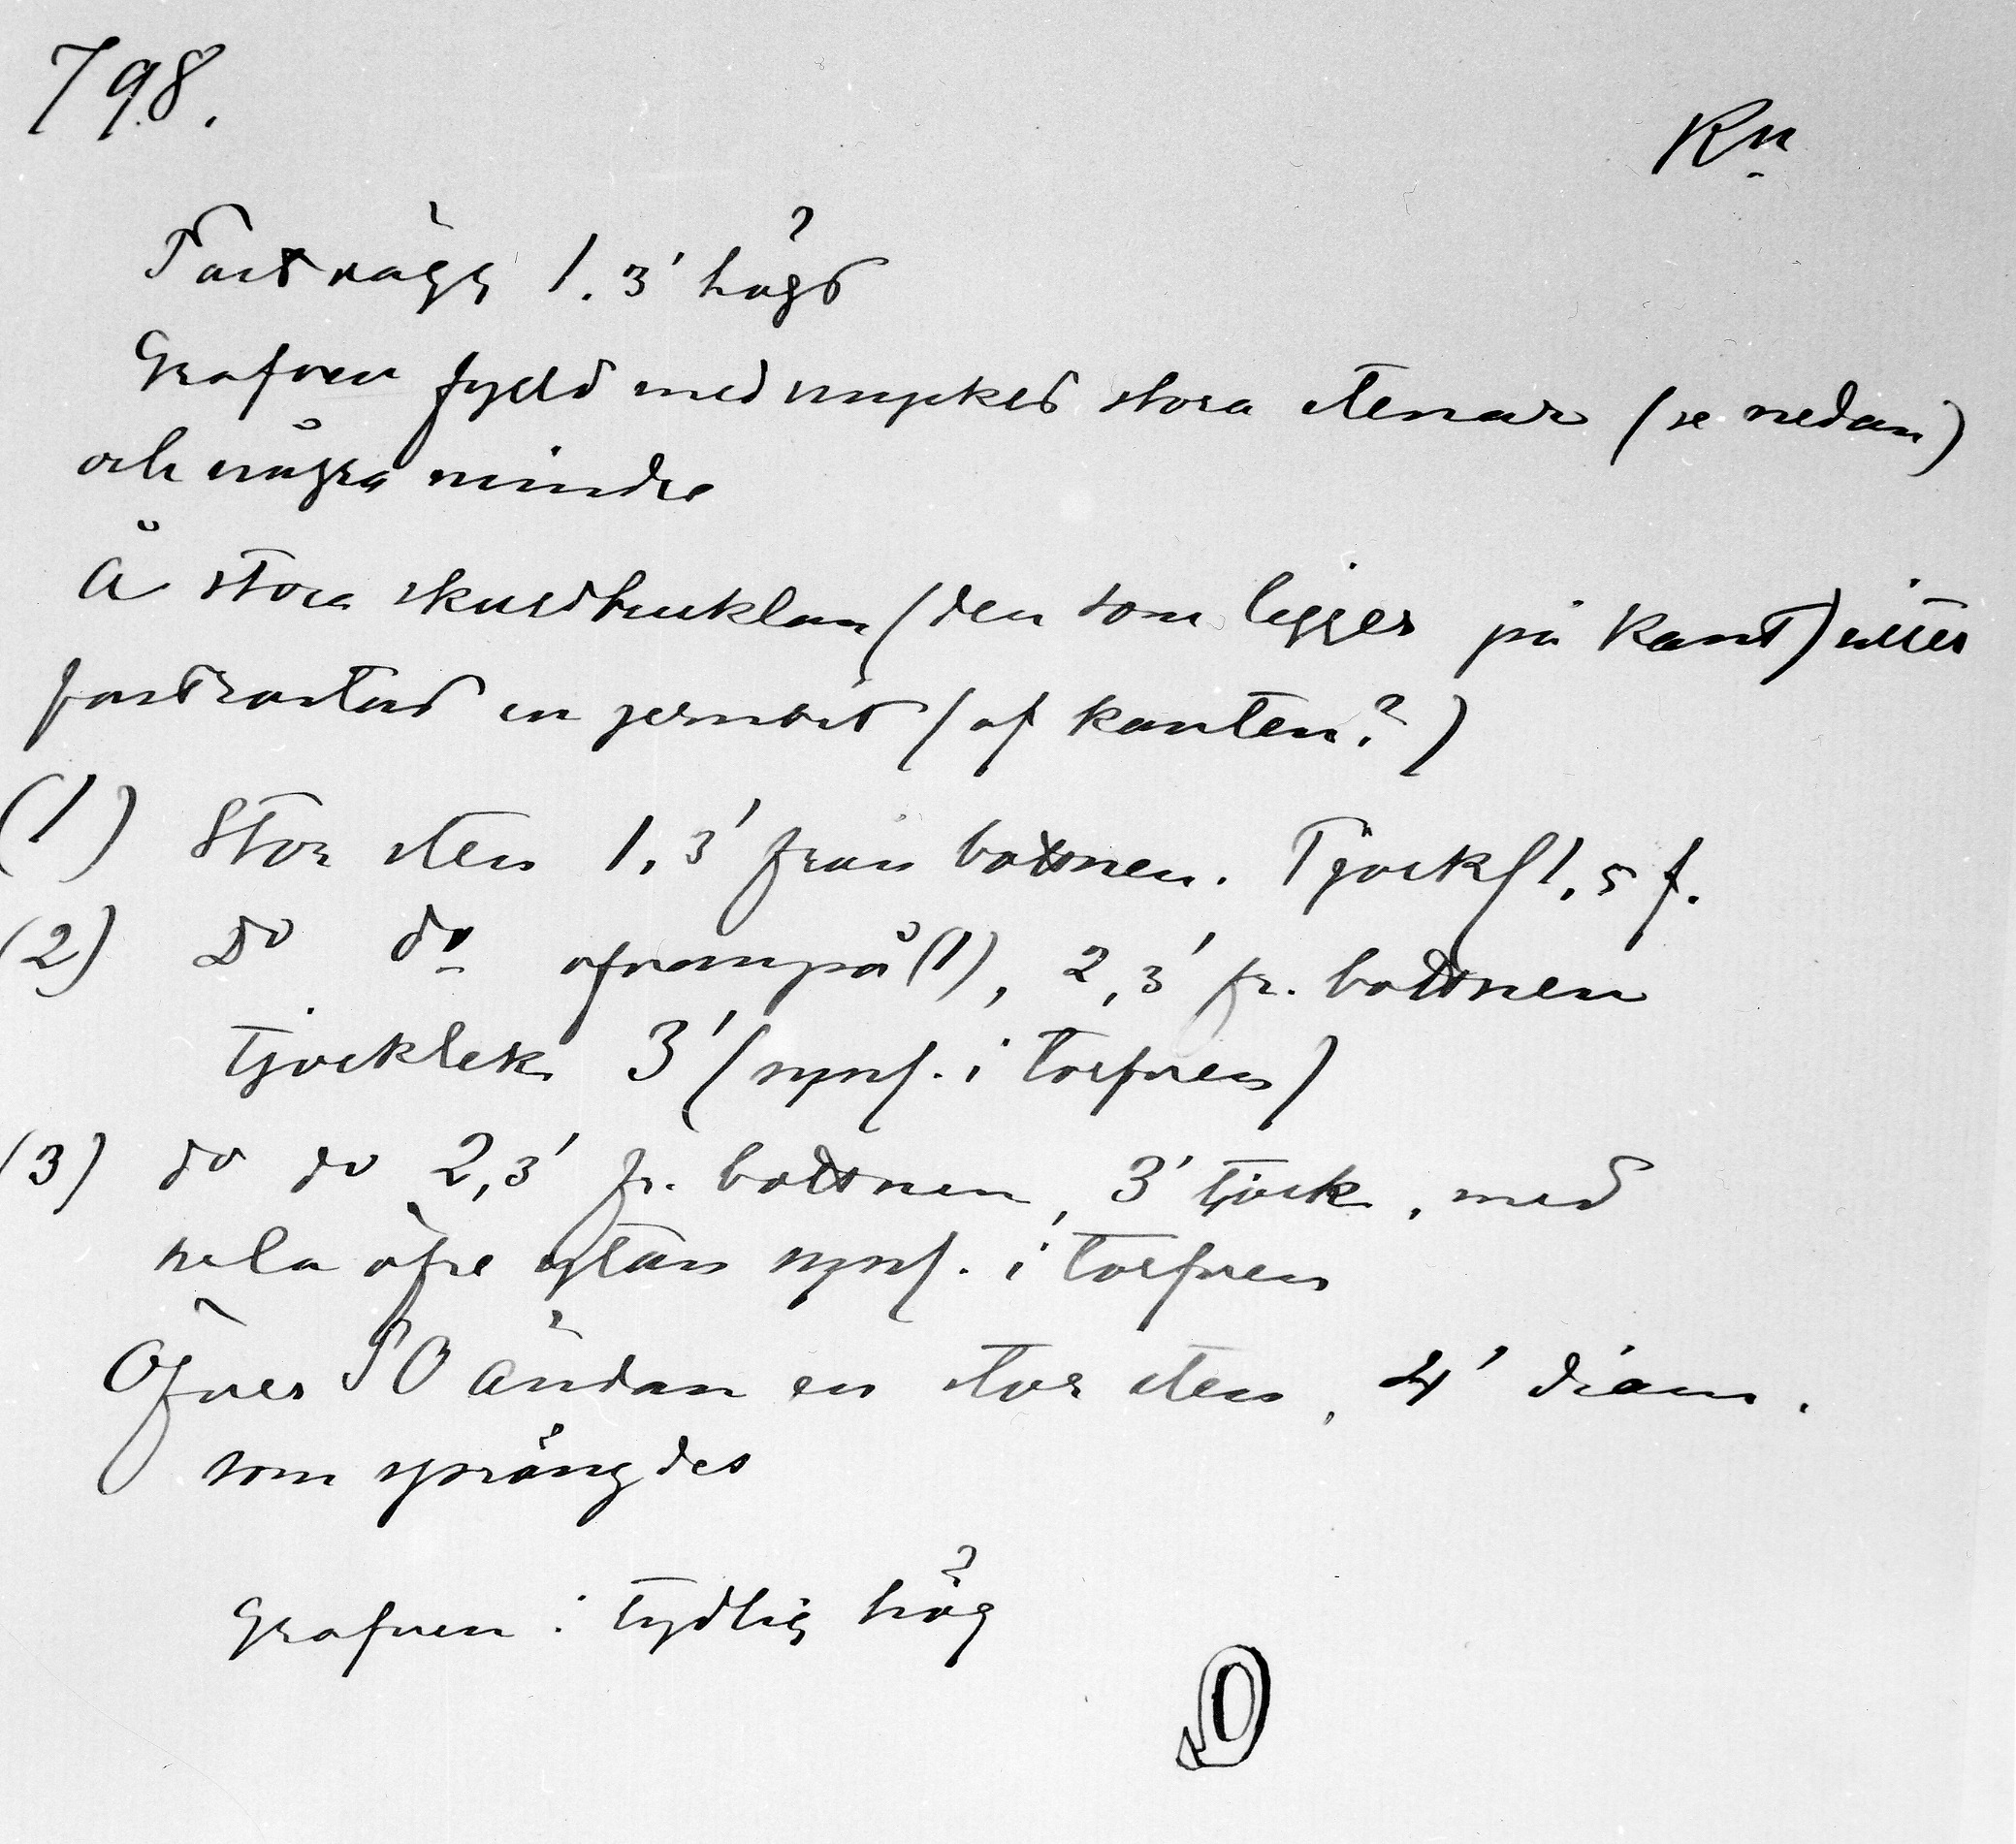 798.
Rn
Fast vägg 1.3' högt
Grafven fylld med mycket stora stenar (se nedan)
och några mindre
Å stora sköldbucklan (den som ligger på kant) sitter
fastrostad en jernbit (af kanten?)
(1) Stor sten 1,3' från bottnen. Tjockl 1,5 f.
(2) Do do ofvanpå (1), 2,3' fr. bottnen
tjocklek 3' (synl. i torfven)
(3) do do 2,3' fr. bottnen, 3' tjock, med
hela öfre ytan synl. i torfven
Öfver SO ändan en stor sten, 4' diam.
som sprängdes
Grafven i tydlig hög